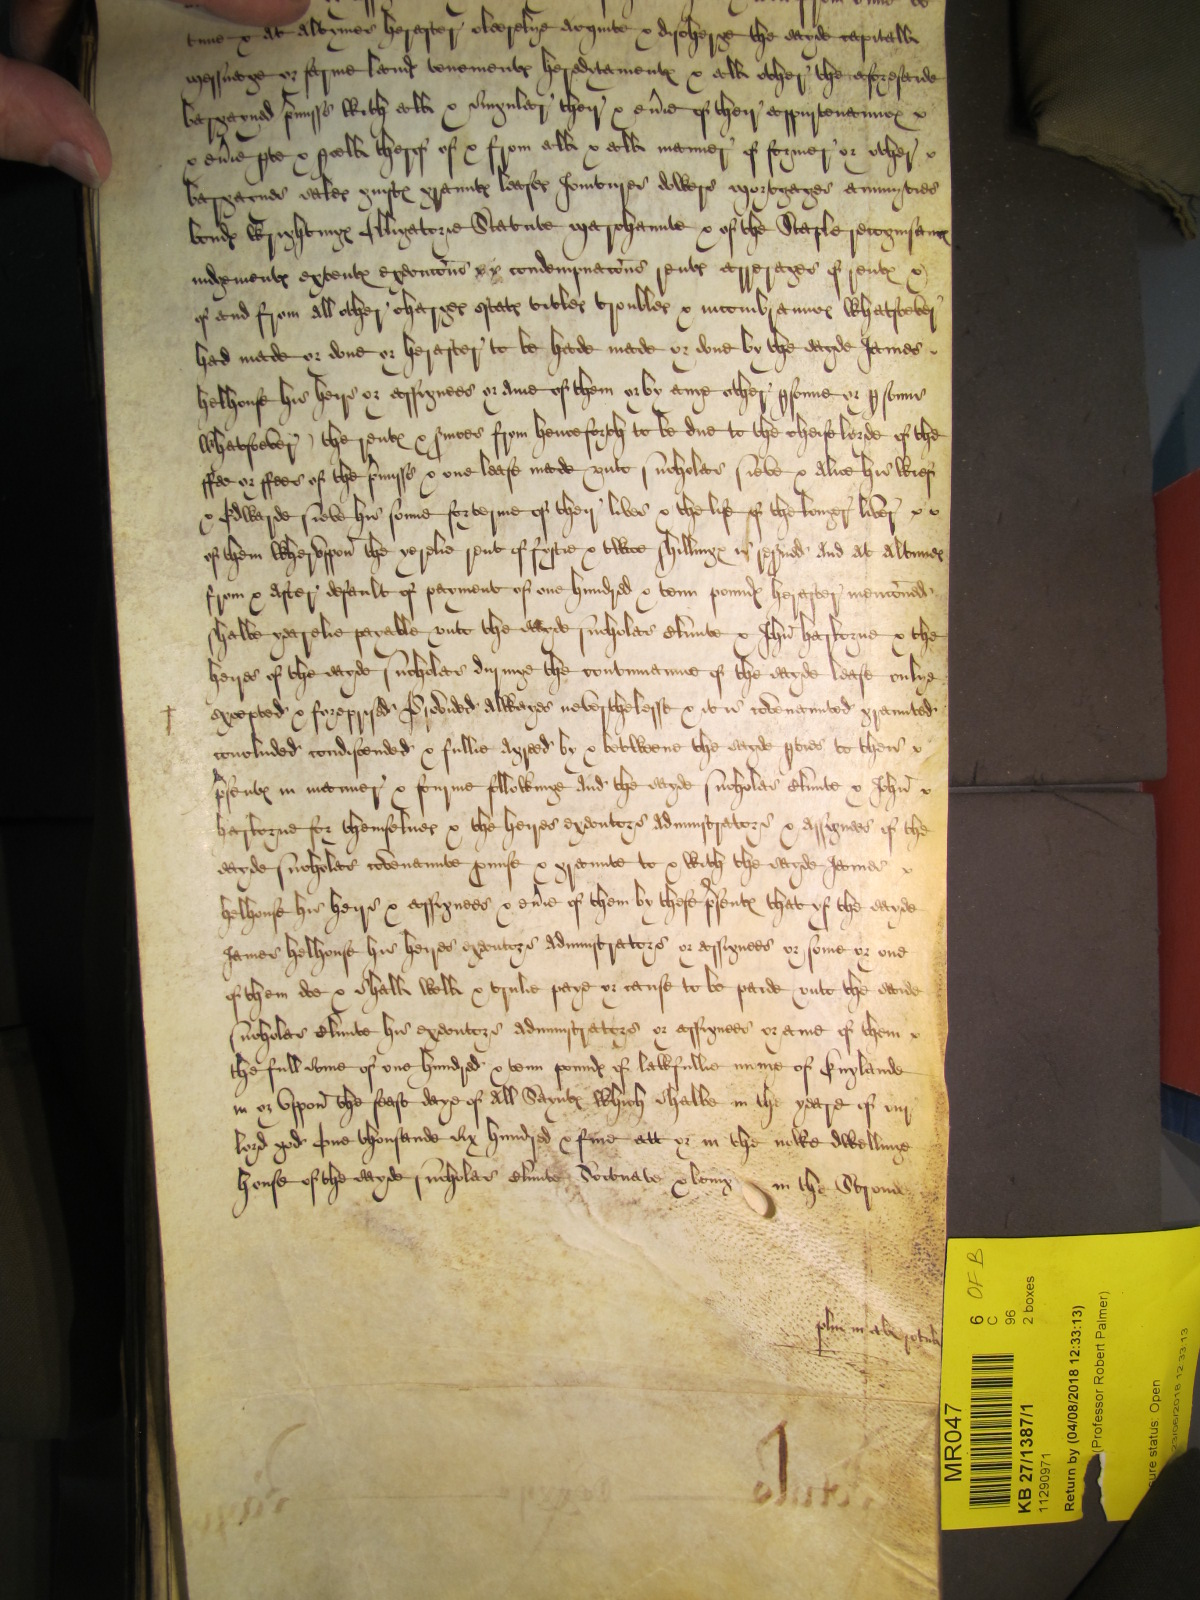 tyme & at altymes hereafter clerelye acquite & discharge the sayde capitall
messuage or farme landes tenementes hereditamentes & all other the aforesaide
bargayned p'misses with all & singuler their & eu'ie of their appurtenaunces &
& eu'ie p'te & p'cell therof of & from all & all manner of former or other &
bargaynes sales guiftes grauntes leases Joyntures dowers mortgages annuyties
bondes wrightinges Obligatorie Statute marchaunte & of the Staple recognisaunces
iudgementes extentes execuc'ons condempnac'ons rentes arrerages of rentes &
of and from all other charges estates titles troubles & incombraunces whatsoever
had made or done or hereafter to be hadde made or done by the sayde James
helhouse his heirs or assignees or anie of them or by anye other p'sonne or p'sonns
whatsoever the rentes & s'vices from henceforth to be due to the cheife lorde of the
ffee or ffees of the p'misses & one lease made vnto Nicholas & Alice his wief
& Edwarde his sonne for terme of their lives & the life of the longer liver
of them wherevppon the yerelie rent of fyftie & twoo shillinges is res'ued And at altimes
from & after default of payment of one hundred & tenn poundes hereafter menc'oned
shalbe yearelie payable vnto the sayde Nicholas Blunte & John haskorne & the
heires of the sayde Nicholas duringe the contynuaunce of the sayde lease onlye
excepted & foreprised Provided alwayes neverthelesse & it is covenaunted graunted
concluded condiscended & fullie agreed by & betweene the sayde p'ties to theis
p'sentes in manner & fourme followinge And the sayde Nicholas Blunte & John
haskorne for themselues & the heires executors administrators & assignees of the
sayde Nicholas covenaunte p'mise & graunte to & with the sayde James
helhouse his heirs & assignees & eu'ie of them by these p'sentes that yf the sayde
James helhouse his heires executors administrators or assignees or some or one
of them doe & shall well & trulie paye or cause to be paide vnto the saide
Nicholas Blunte his executors administrators or assignees or anie of them
the full some of one hundred & tenn poundes of lawfullie monie of Englande
in or vppon the feast daye of All Sayntes which shalbe in the yeare of our
lord god One thousande six hundred & fiue att or in the nowe dwellinge
house of the sayde Nicholas Blunte Scituate & being in the Stronde
MR047
6 OF B
C
96
2 boxes
KB 27/1387/1
11290971
Return by (04/08/2018 12:33:13)
(Professor Robert Palmer)
ure status: Open
23/06/2018 12:33:13